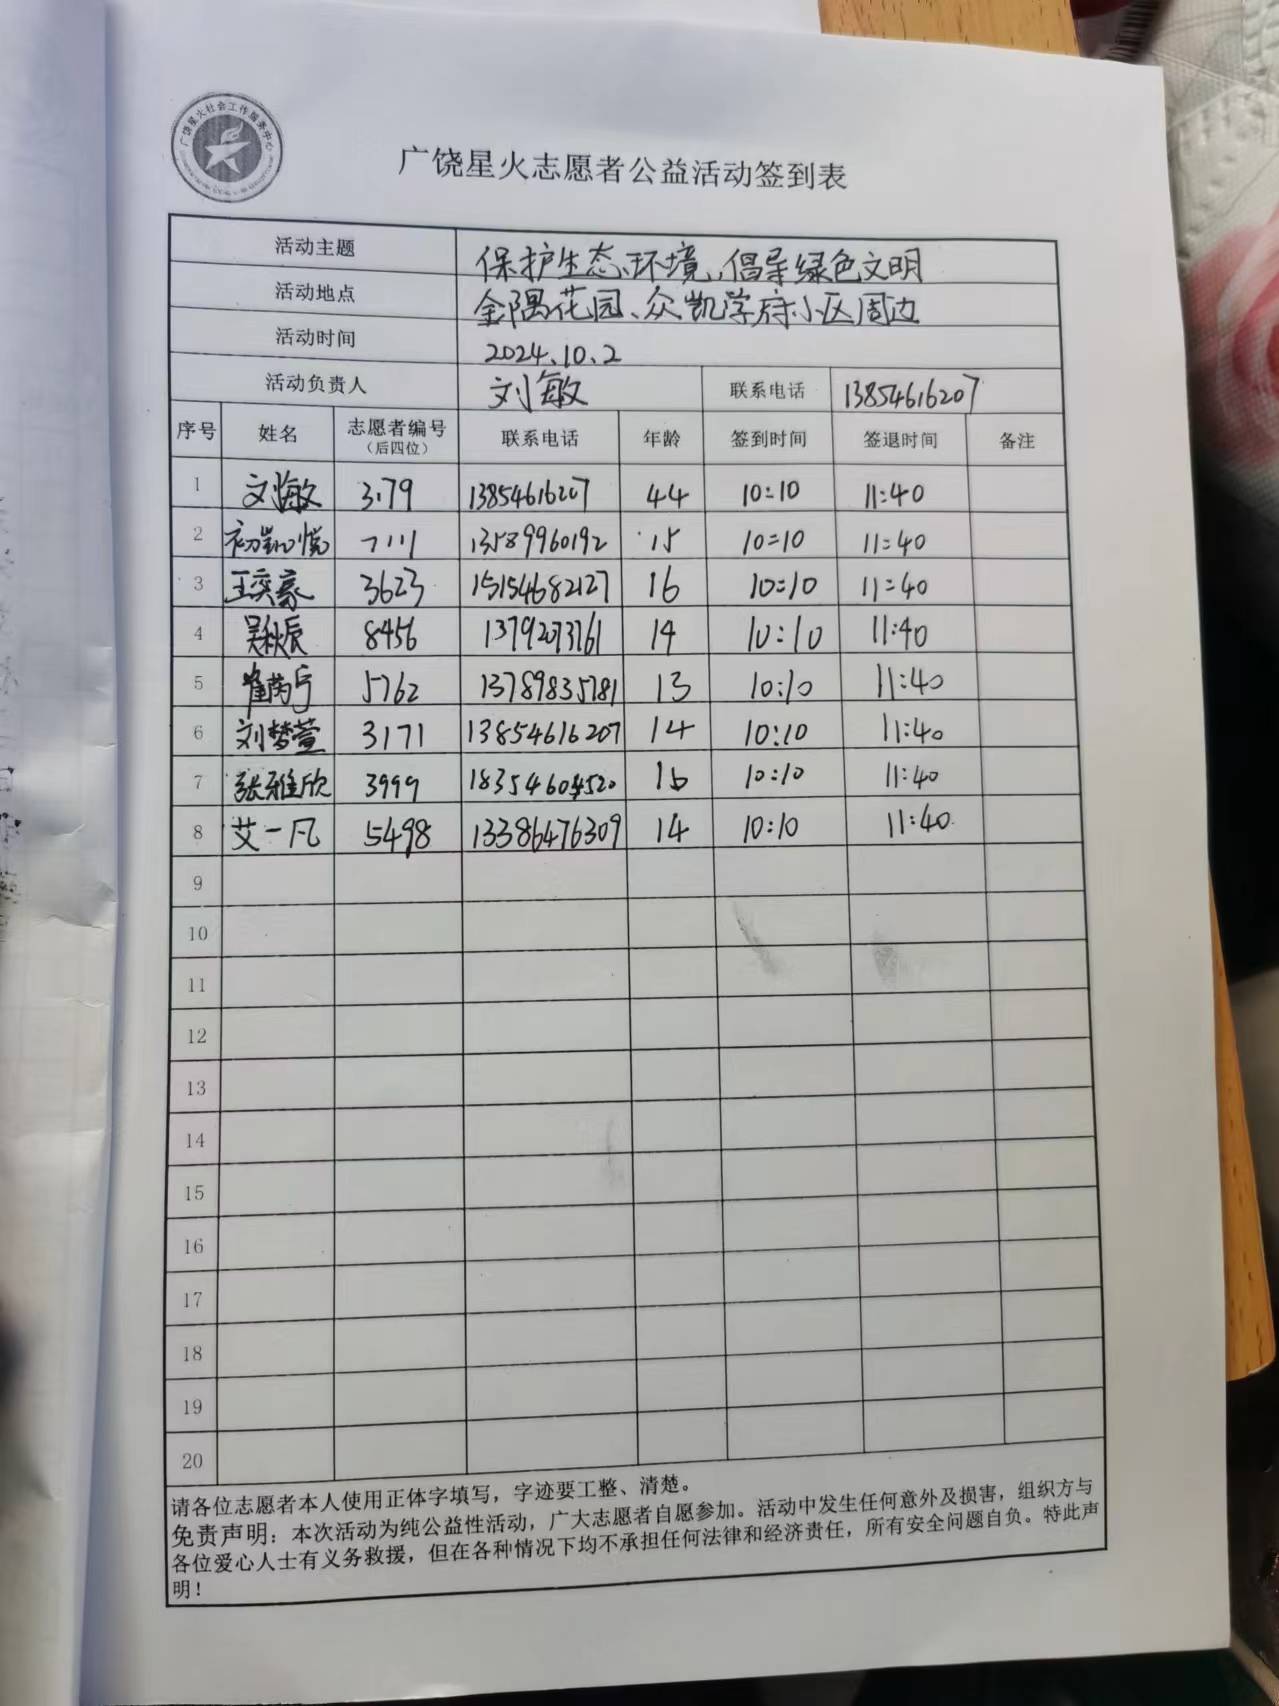 广饶星火社会工作服务中心
广饶星火志愿者公益活动签到表
活动主题 保护生态环境,倡导绿色文明
活动地点 金隅花园、众凯学府小区周边
活动时间 2024.10.2
活动负责人 刘敏 联系电话 13854616207
序号 姓名 志愿者编号(后四位) 联系电话 年龄 签到时间 签退时间 备注
1 刘敏 3179 13854616207 44 10:10 11:40
2 初凯悦 7111 13589960192 15 10:10 11:40
3 王奕豪 3623 15154682127 16 10:10 11:40
4 吴秋辰 8456 13792073761 14 10:10 11:40
5 崔芮宁 5762 13789835781 13 10:10 11:40
6 刘梦萱 3171 13854616207 14 10:10 11:40
7 张雅欣 3999 18354604520 15 10:10 11:40
8 艾一凡 5498 13386476309 14 10:10 11:40
9
10
11
12
13
14
15
16
17
18
19
20
请各位志愿者本人使用正体字填写，字迹要工整、清楚。
免责声明：本次活动为纯公益性活动，广大志愿者自愿参加。活动中发生任何意外及损害，组织方与
各位爱心人士有义务救援，但在各种情况下均不承担任何法律和经济责任，所有安全问题自负。特此声
明！